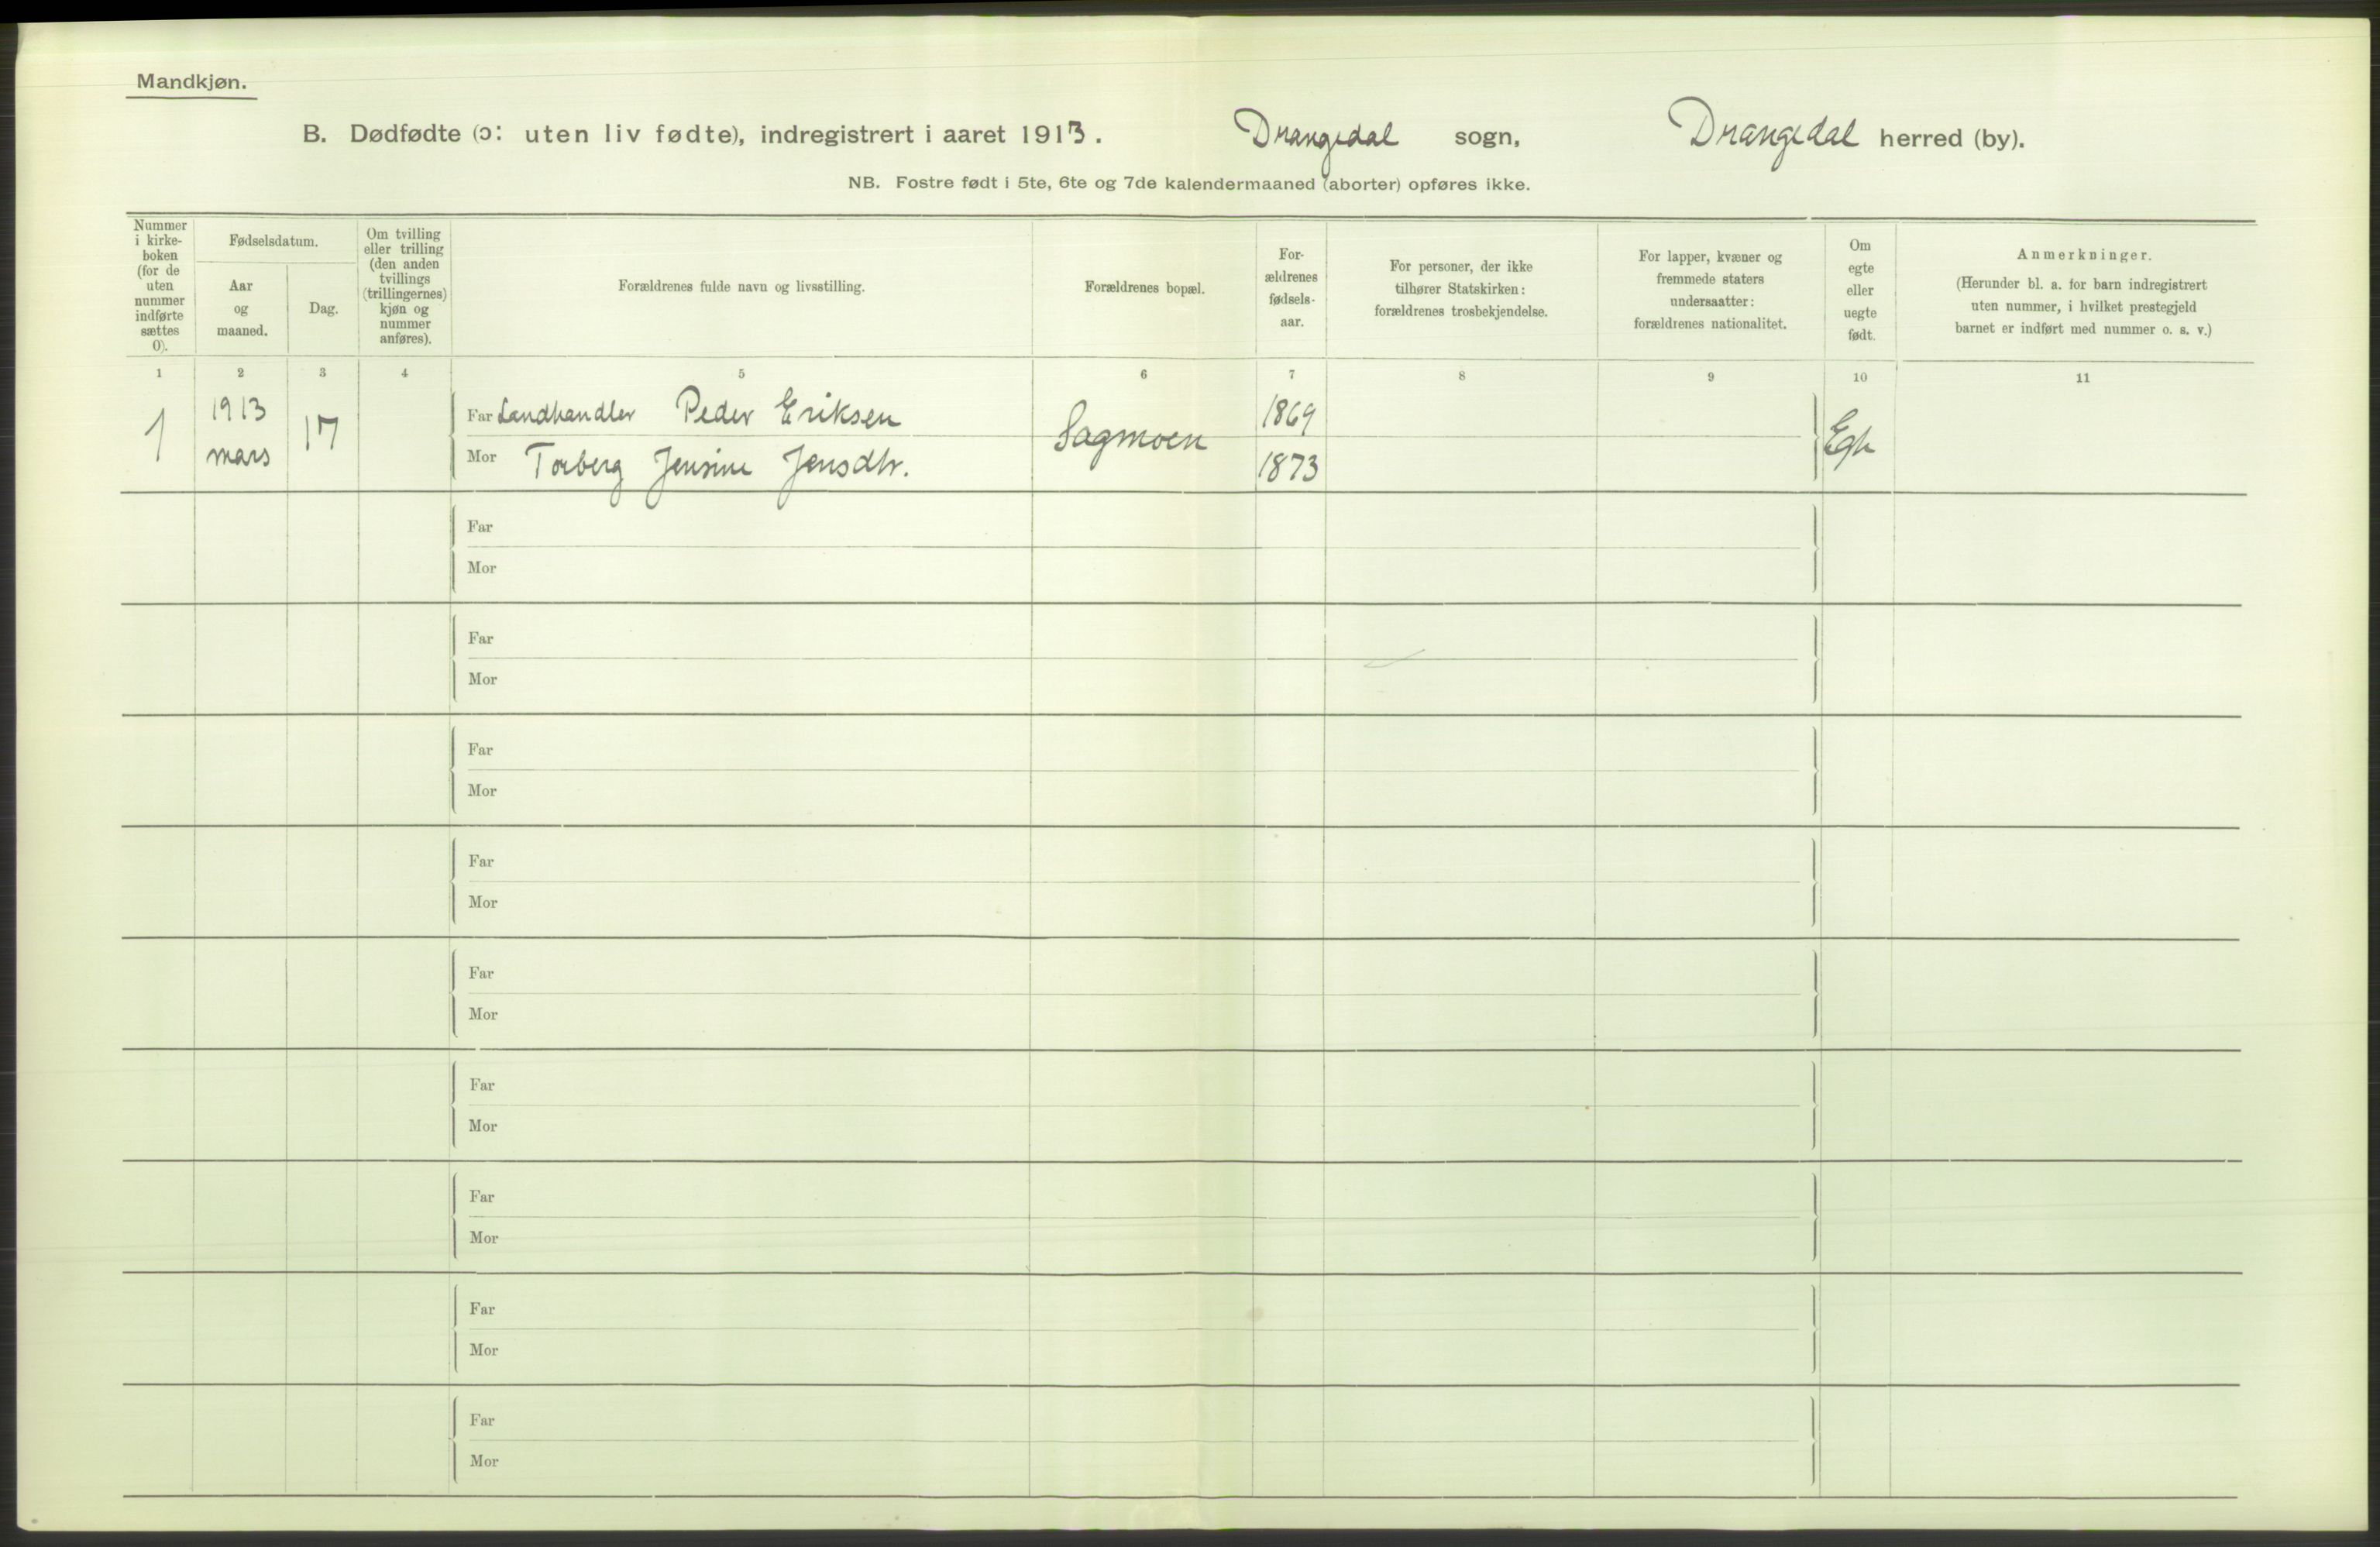 Mandkjøn.
B. Dødfødte (ɔ: uten liv fødte), indregistrert i aaret 1913. Drangedal sogn, Drangedal herred (by).
NB. Fostre født i 5te, 6te og 7de kalendermaaned (aborter) opføres ikke.
Nummer
i kirke-
boken
(for de
uten
nummer
indførte
sættes
0).
Fødselsdatum.
Aar
og
maaned.
Dag.
Om tvilling
eller trilling
(den anden
tvillings
(trillingernes)
kjøn og
nummer
anføres).
Forældrenes fulde navn og livsstilling.
Forældrenes bopæl.
For-
ældrenes
fødsels-
aar.
For personer, der ikke
tilhører Statskirken:
forældrenes trosbekjendelse.
For lapper, kvæner og
fremmede staters
undersaatter:
forældrenes nationalitet.
Om
egte
eller
uegte
født.
Anmerkninger.
(Herunder bl. a. for barn indregistrert
uten nummer, i hvilket prestegjeld
barnet er indført med nummer o. s. v.)
1 2 3 4 5 6 7 8 9 10 11
1
1913
mars
17
Far Landhandler Peder Eriksen
Mor Torberg Jensine Jensdtr.
Sagmoen
1869
1873
Egte
Far
Mor
Far
Mor
Far
Mor
Far
Mor
Far
Mor
Far
Mor
Far
Mor
Far
Mor
Far
Mor